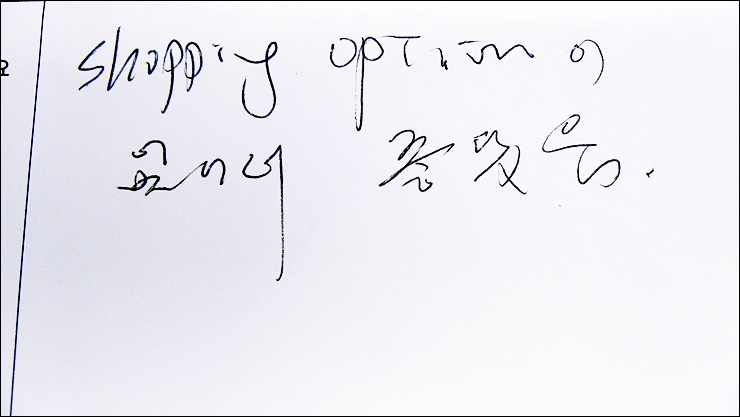 shopping option이
좋았음.